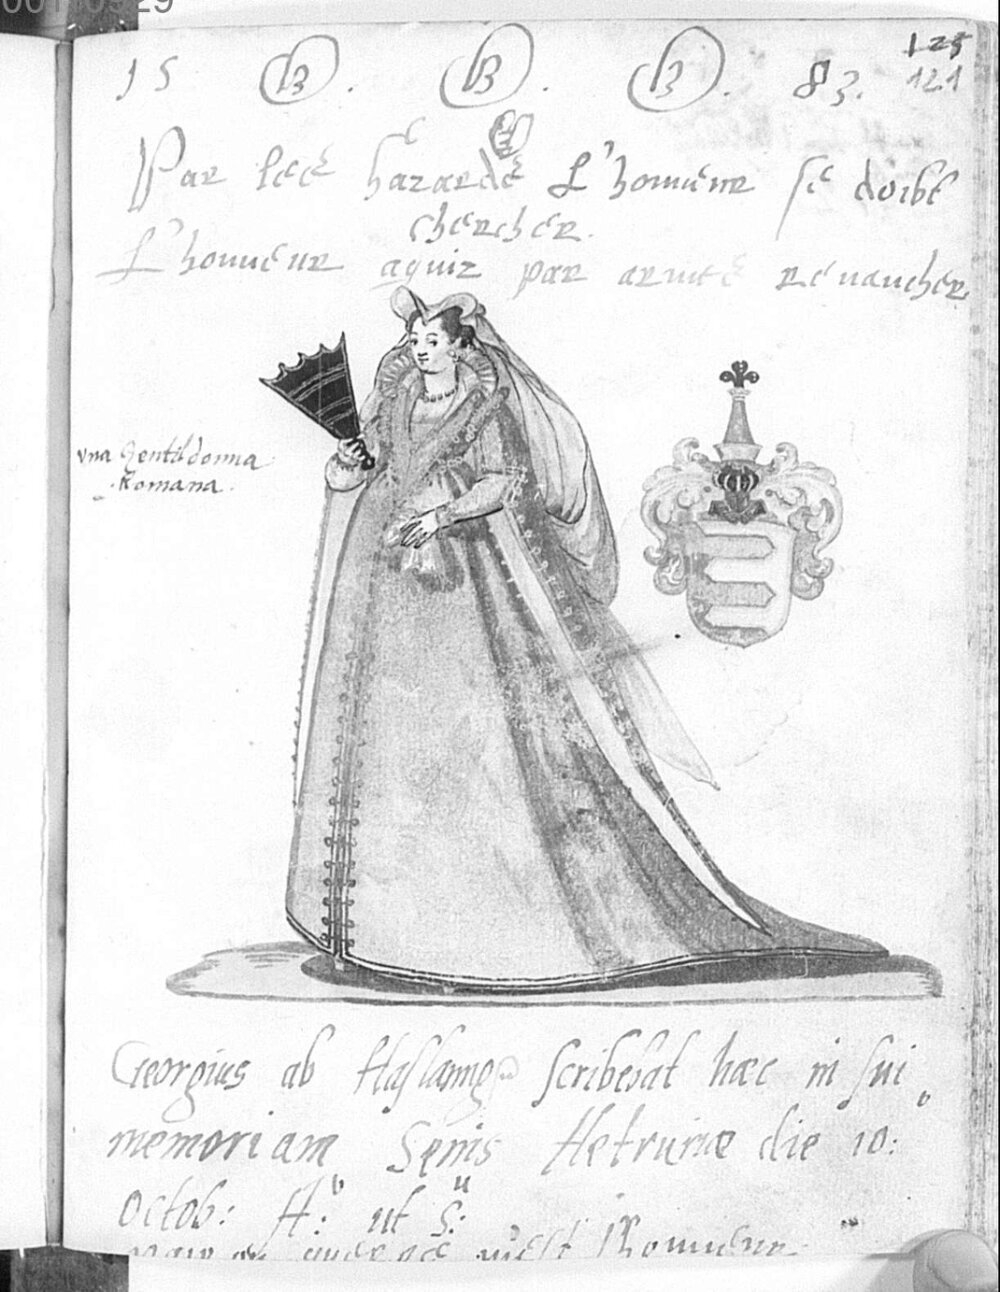 00110929
125
15 B. B. B. 83. 121
Par lee hazarde L'honneur se doibt
chercher.
L'honneur aquiz par armee revancher
vna Gentildonna
Romana.
Georgius ab Haslanng scribebat hæc in sui
memoriam Senis Hetruriæ die 10:
Octob: Aº: ut s:
n'est l'honneur